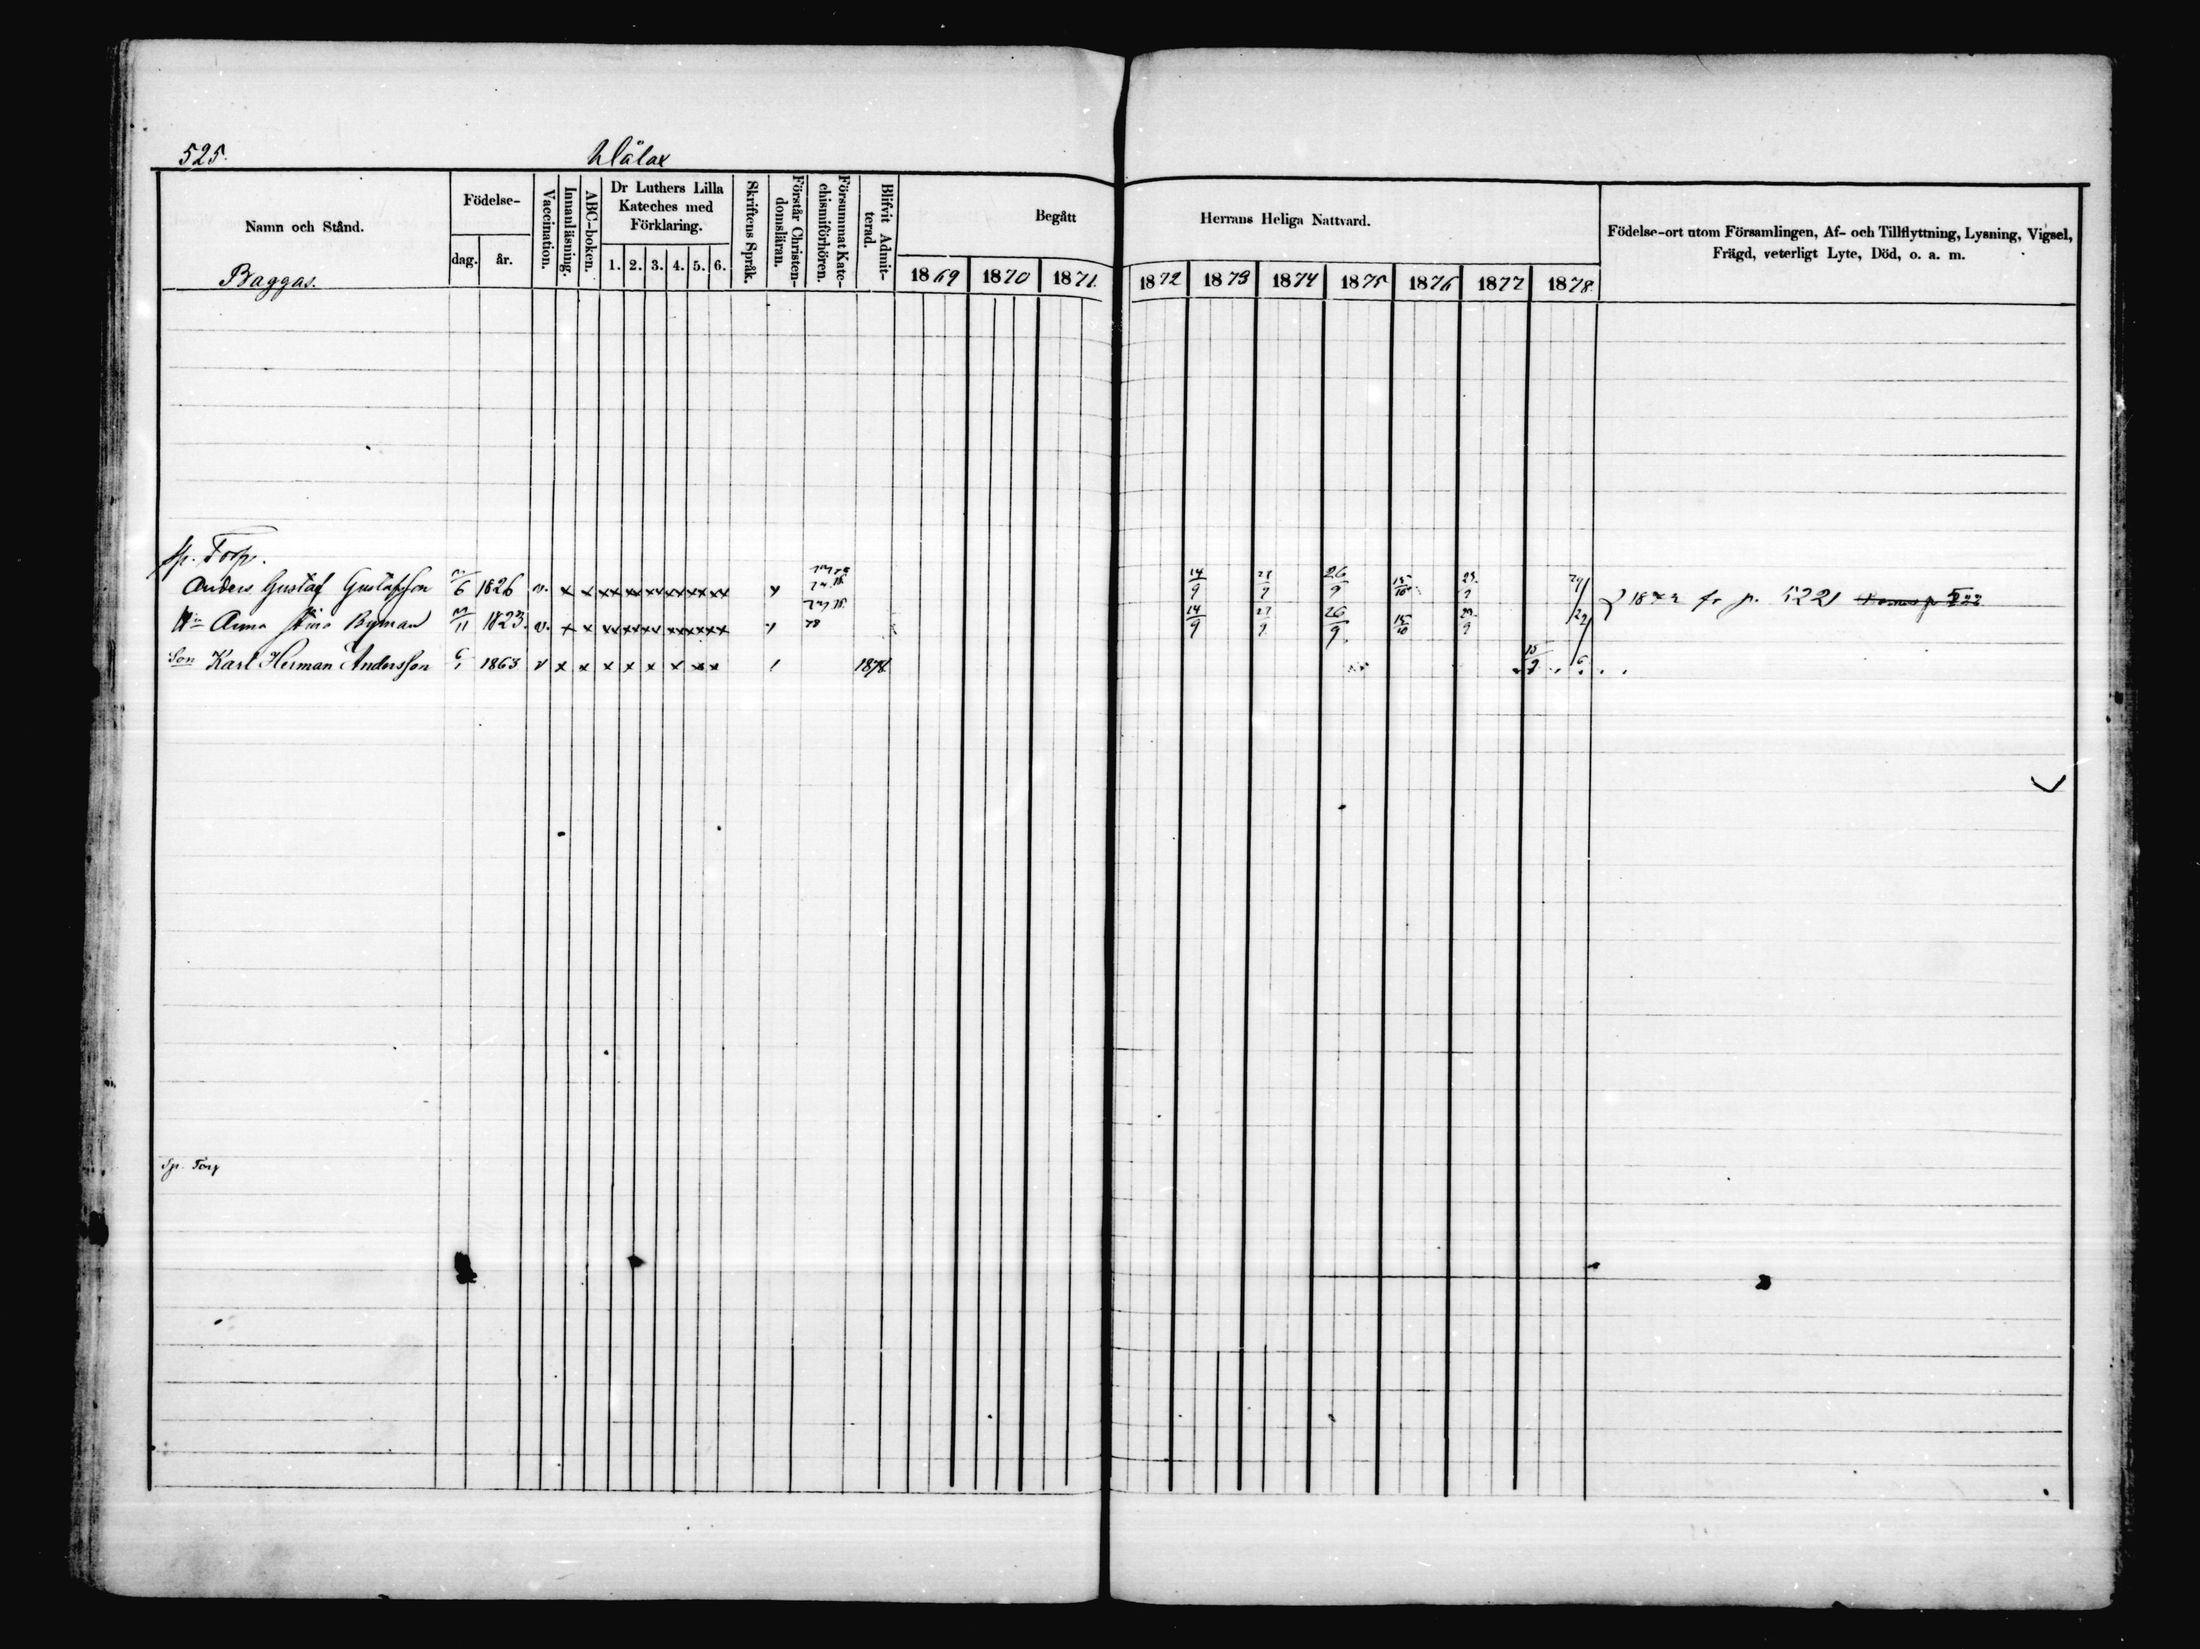 525.
Namn och Stånd.
Baggas.
Födelse-
dag.
år.
Vaccination.
Innanläsning.
ABC-boken.
Dr Luthers Lilla
Kateches med
Förklaring.
1. 2. 3. 4. 5. 6.
Skriftens Språk.
Förstår Christen-
domsläran.
Försummat Kate-
chismiförhören.
Blifvit Admit-
terad.
Begått
Herrans Heliga Nattvard.
1869 1870 1871 1872 1873 1874 1875 1876 1877 1878
Födelse-ort utom Församlingen, Af- och Tillflyttning, Lysning, Vigsel,
Frägd, veterligt Lyte, Död, o. a. m.
Sp. Torp.
Anders Gustaf Gustafsson 1826 v. x x xx xx xx xx xx xx x 14/9 26/9 15/10
Anna Stina Byman 1823. v. x x xx xx xx xx xx xx 78 14/9 26/9 15/10
Son Karl Herman Andersson 6/1 1863 v x x x x x x x x 1878
fr p. 522
Sp. Torp